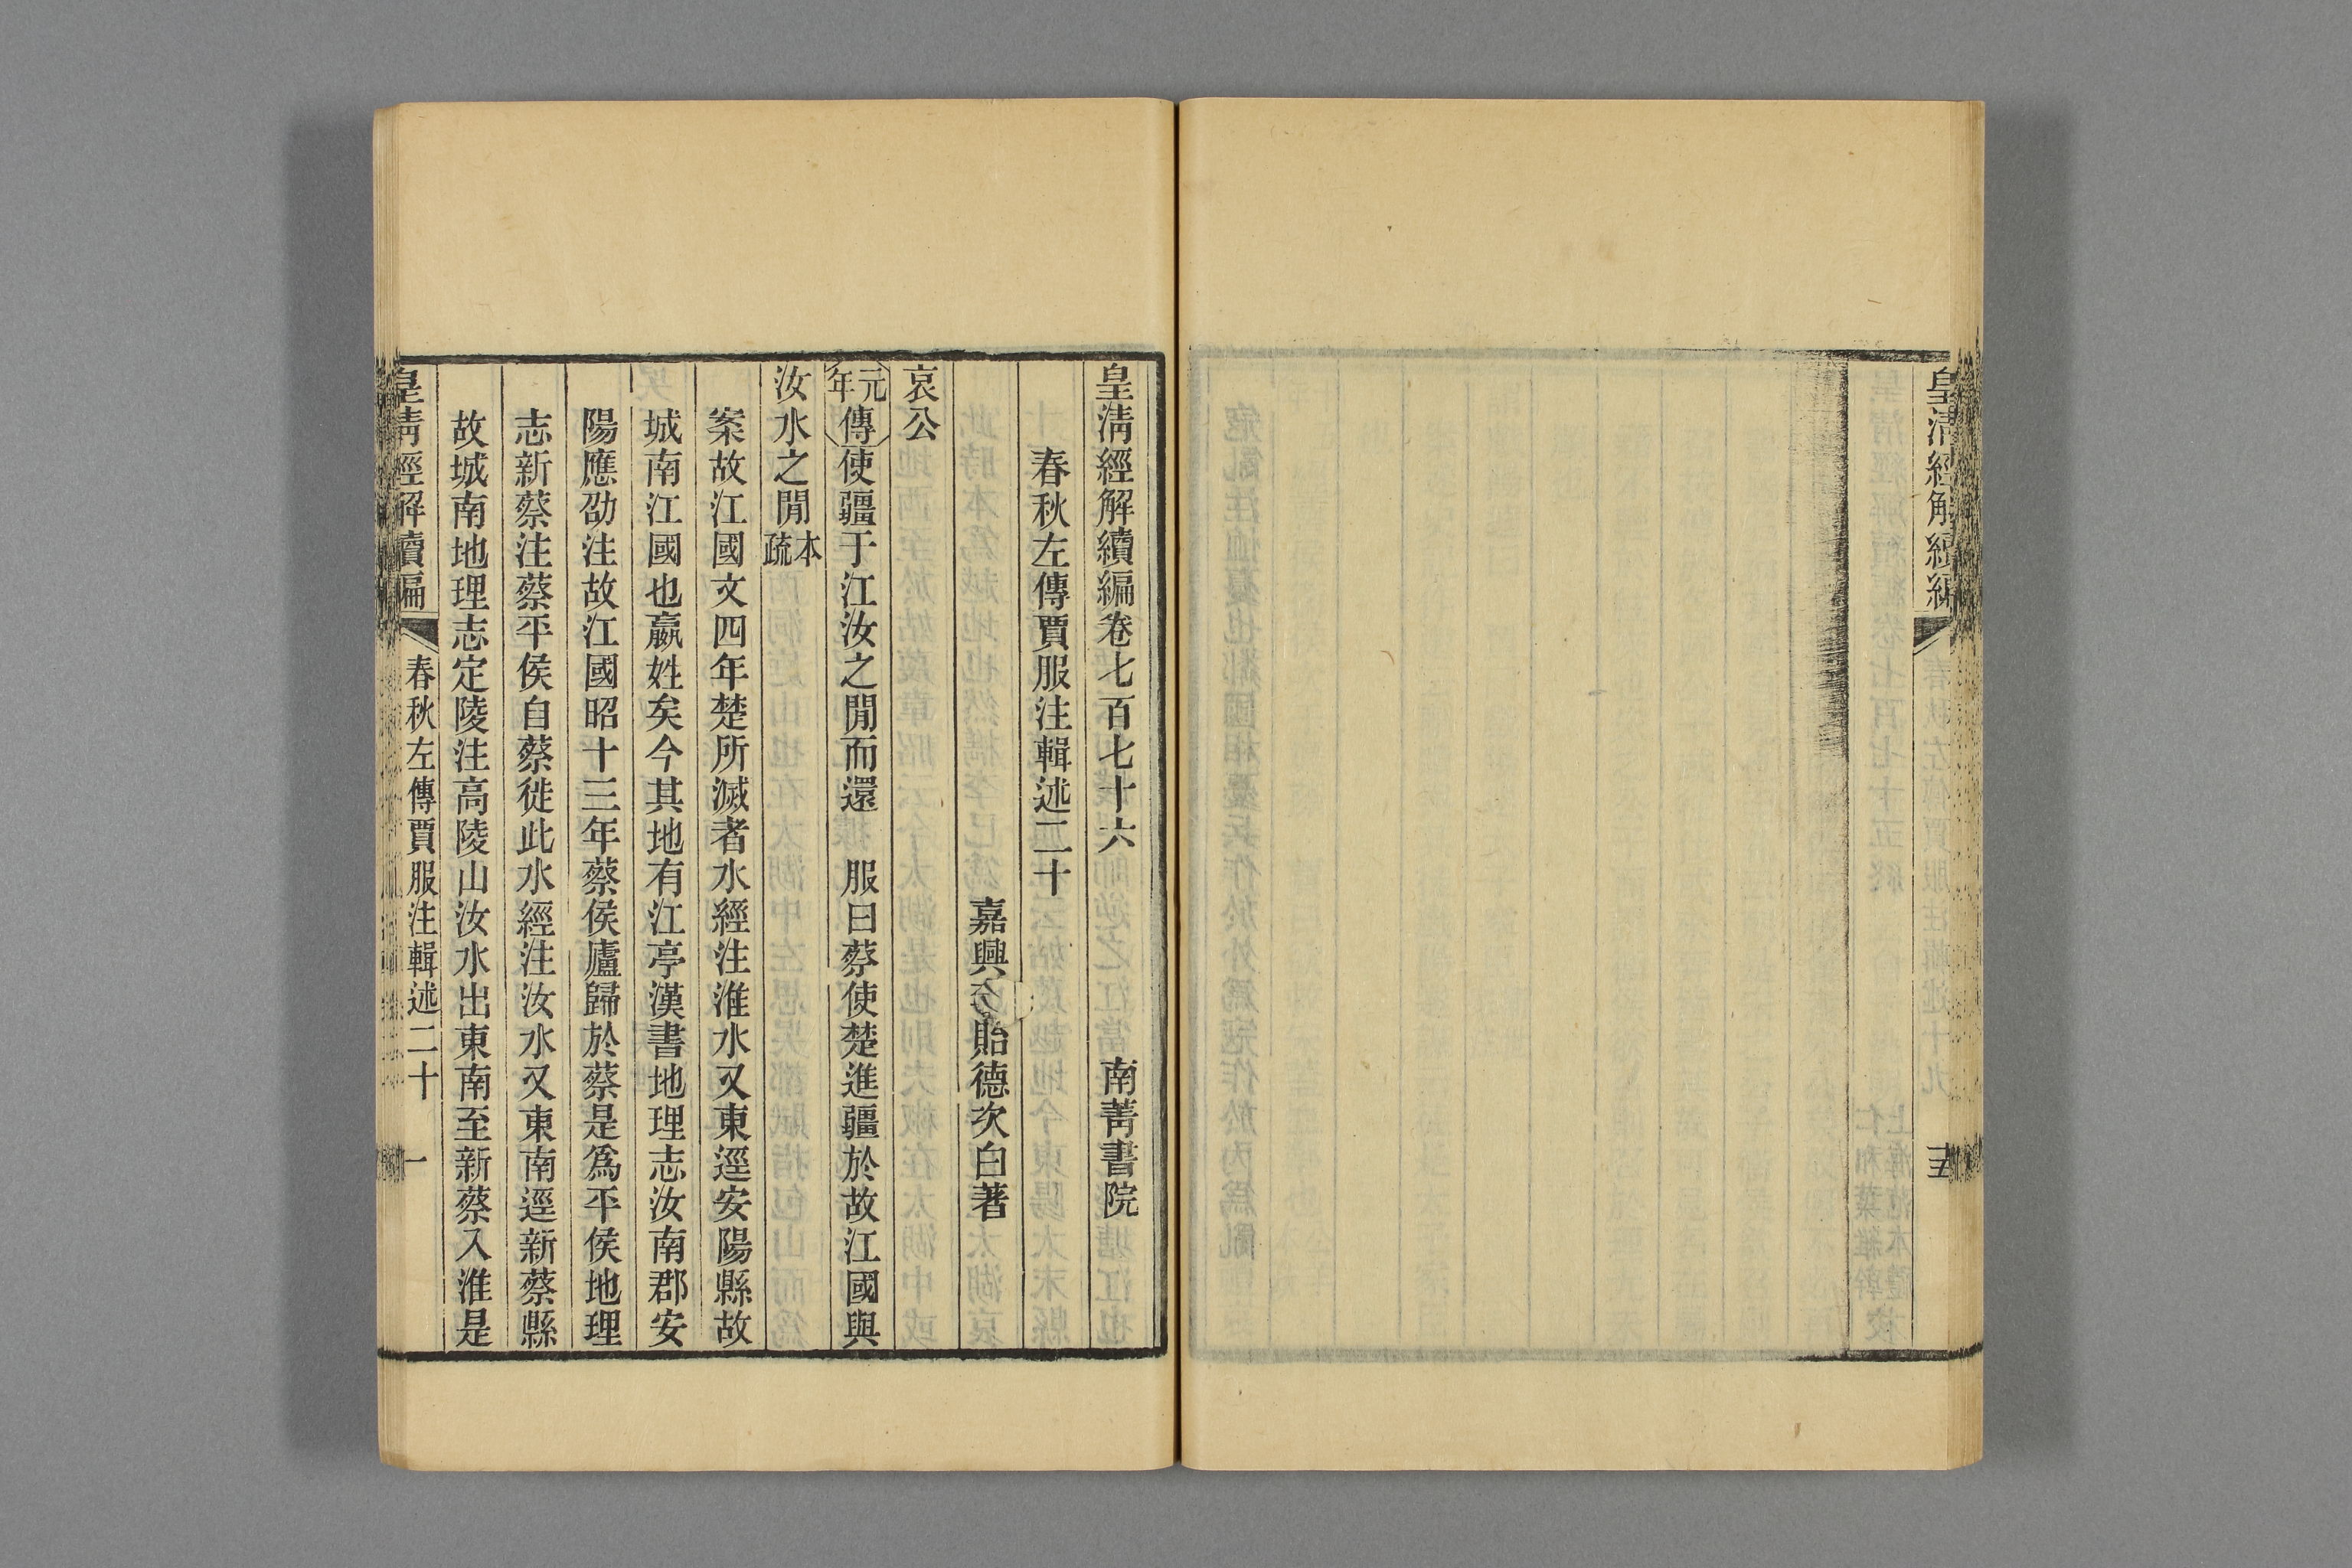 皇清經解續編
五
皇清經解續編卷七百七十六 南菁書院
春秋左傳賈服注輯述二十
嘉興 貽德次白著
哀公
元年傳使疆于江汝之閒而還 服曰蔡使楚進疆於故江國與
汝水之閒本疏
案故江國文四年楚所滅者水經注淮水又東逕安陽縣故
城南江國也嬴姓矣今其地有江亭漢書地理志汝南郡安
陽應劭注故江國昭十三年蔡侯廬歸於蔡是為平侯地理
志新蔡注蔡平侯自蔡徙此水經注汝水又東南逕新蔡縣
故城南地理志定陵注高陵山汝水出東南至新蔡入淮是
皇清經解續編 春秋左傳賈服注輯述二十 一